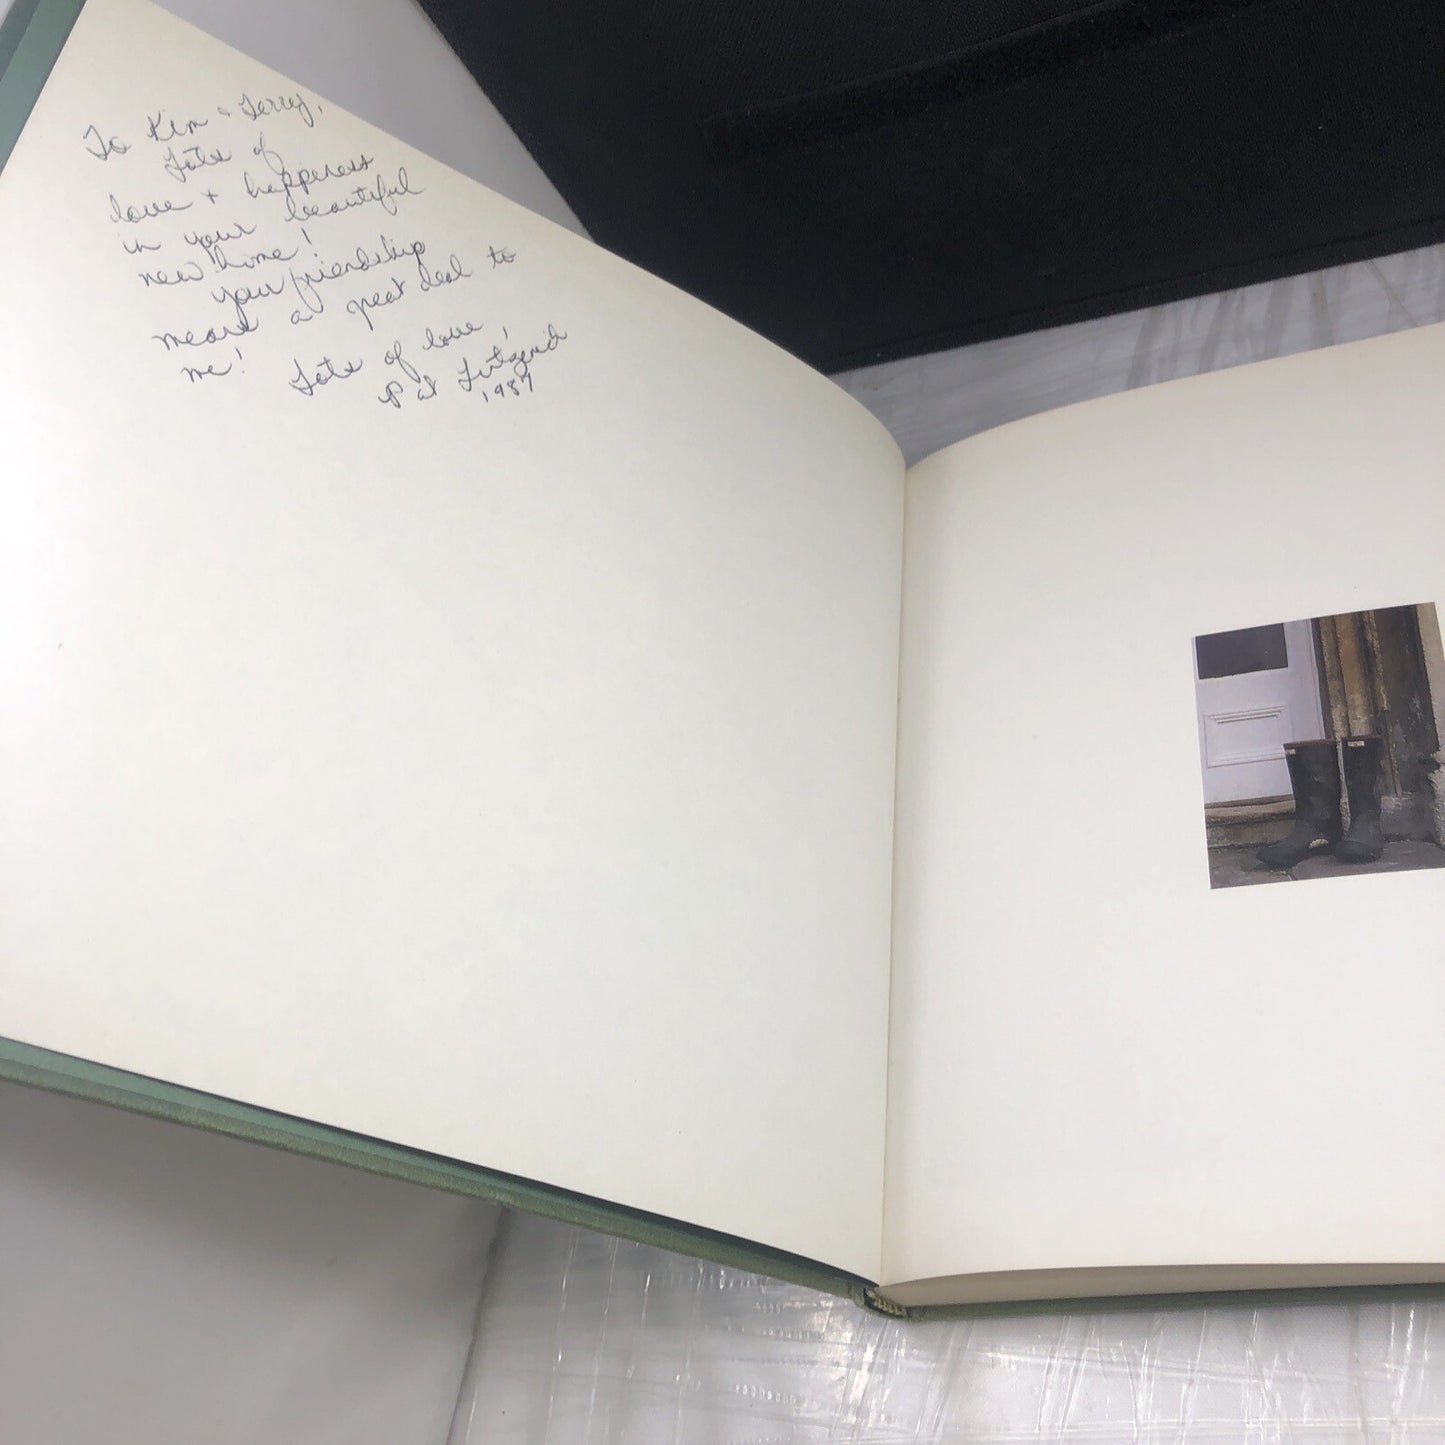 To Kim & Terry,
Lots of
love + happiness
in your beautiful
new home!
Your friendship
means a great deal to
me!
Lots of love,
Pat
1987